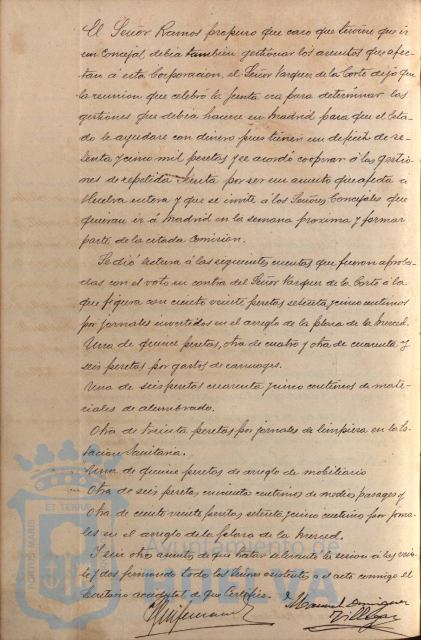 El Señor Ramos propuso que caso que tuviese que ir
un Concejal debia tambien gestionar los asuntos que afec-
tan á esta Corporacion, el Señor Vazquez de la Corte dijo que
la reunion que celebró la Junta era para determinar las
gestiones que debia hacerse en Madrid para que el Esta-
do le ayudase con dinero pues tienen un deficit de se-
tenta y cinco mil pesetas y se acordó cooperar á las gestio-
nes de repetida Junta por ser un asunto que afecta a
Huelva entera y que se invite á los Señores Concejales que
quieran ir á Madrid en la semana proxima y formar
parte de la citada Comision.
Se dió lectura á las siguientes cuentas que fueron aproba-
das con el voto en contra del Señor Vazquez de la Corte á la
que figura con ciento veinte pesetas setenta y cinco centimos
por jornales invertidos en el arreglo de la plaza de la Merced.
Una de quince pesetas, otra de cuatro y otra de cuarenta y
seis pesetas por gastos de carruages.
Una de seis pesetas cuarenta y cinco centimos de mate-
riales de alumbrado.
Otra de treinta pesetas por jornales de limpieza en la Es-
tacion Sanitaria.
Una de quince pesetas de arreglo de mobiliario
Otra de seis pesetas cincuenta centimos de medios pasages y
Otra de ciento veinte pesetas setenta y cinco centimos por jorna-
les en el arreglo de la plaza de la Merced.
Y sin otro asunto de que tratar se levantó la sesion á las
y dos firmando todos los Señores asistentes el acta conmigo el
Secretario accidental de que Certifico.
Manuel Dominguez
Villegas
PORTUS MARIS
ET TERRAE
Ayuntamiento de
HUELVA